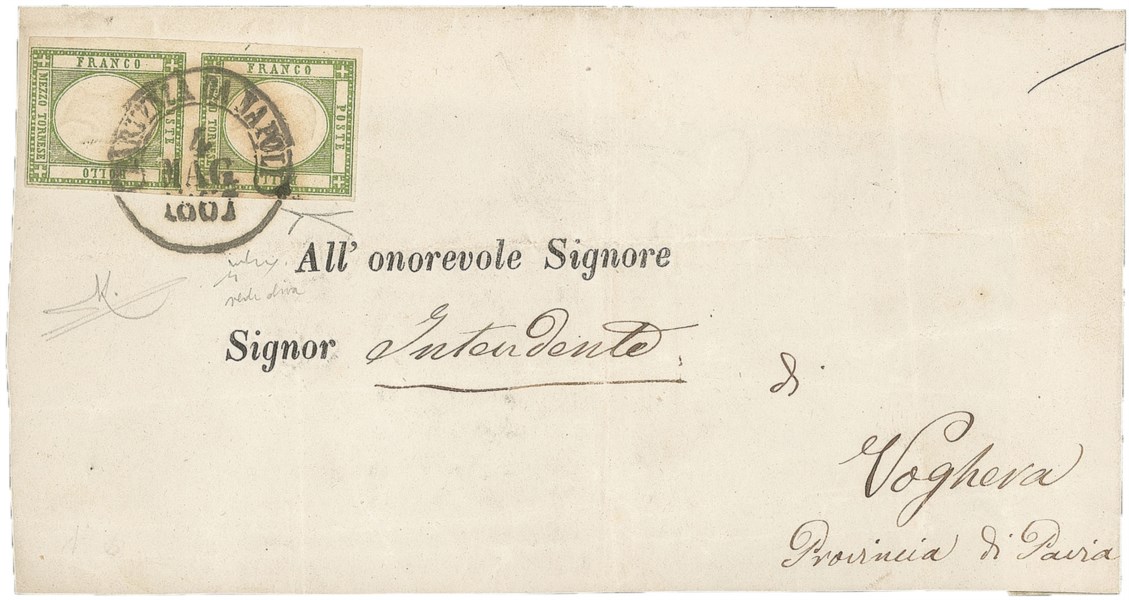 FRANCO
MEZZO TORNESE
POSTE
BOLLO
FRANCO
MEZZO TORNESE
POSTE
PARTENZA DA NAPOLI
4
MAG
1861
All' onorevole Signore
Signor Intendente
di
Voghera
Provincia di Pavia
verde oliva